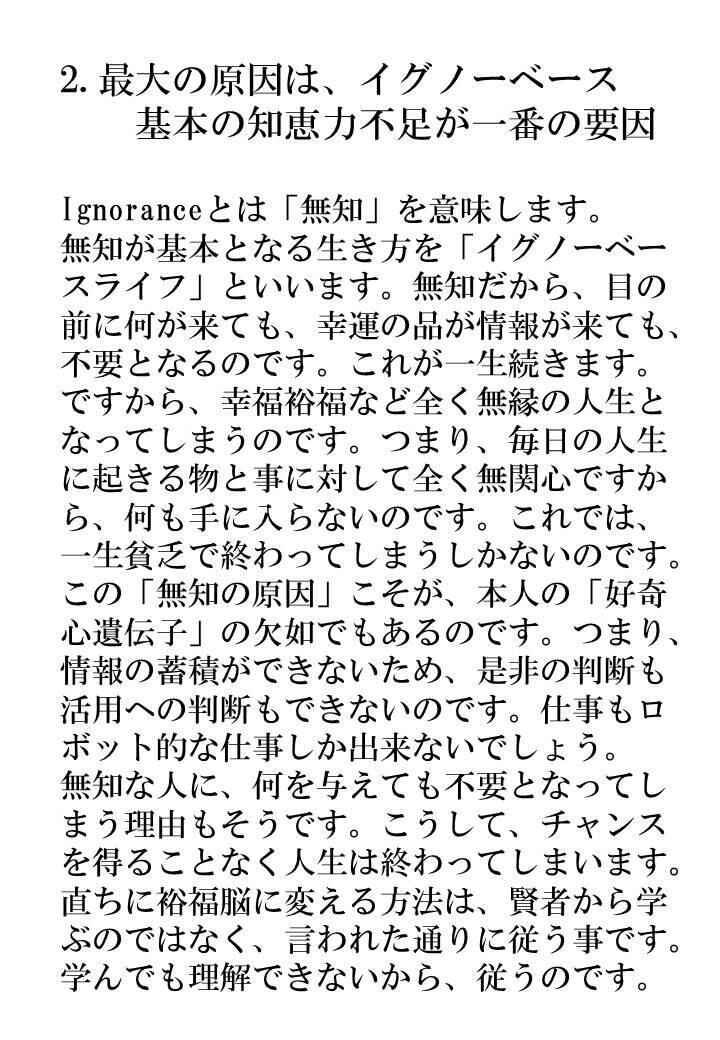 2. 最大の原因は、イグノーベース
基本の知恵力不足が一番の要因
Ignoranceとは「無知」を意味します。
無知が基本となる生き方を「イグノーベー
スライフ」といいます。無知だから、目の
前に何が来ても、幸運の品が情報が来ても、
不要となるのです。これが一生続きます。
ですから、幸福裕福など全く無縁の人生と
なってしまうのです。つまり、毎日の人生
に起きる物と事に対して全く無関心ですか
ら、何も手に入らないのです。これでは、
一生貧乏で終わってしまうしかないのです。
この「無知の原因」こそが、本人の「好奇
心遺伝子」の欠如でもあるのです。つまり、
情報の蓄積ができないため、是非の判断も
活用への判断もできないのです。仕事もロ
ボット的な仕事しか出来ないでしょう。
無知な人に、何を与えても不要となってし
まう理由もそうです。こうして、チャンス
を得ることなく人生は終わってしまいます。
直ちに裕福脳に変える方法は、賢者から学
ぶのではなく、言われた通りに従う事です。
学んでも理解できないから、従うのです。